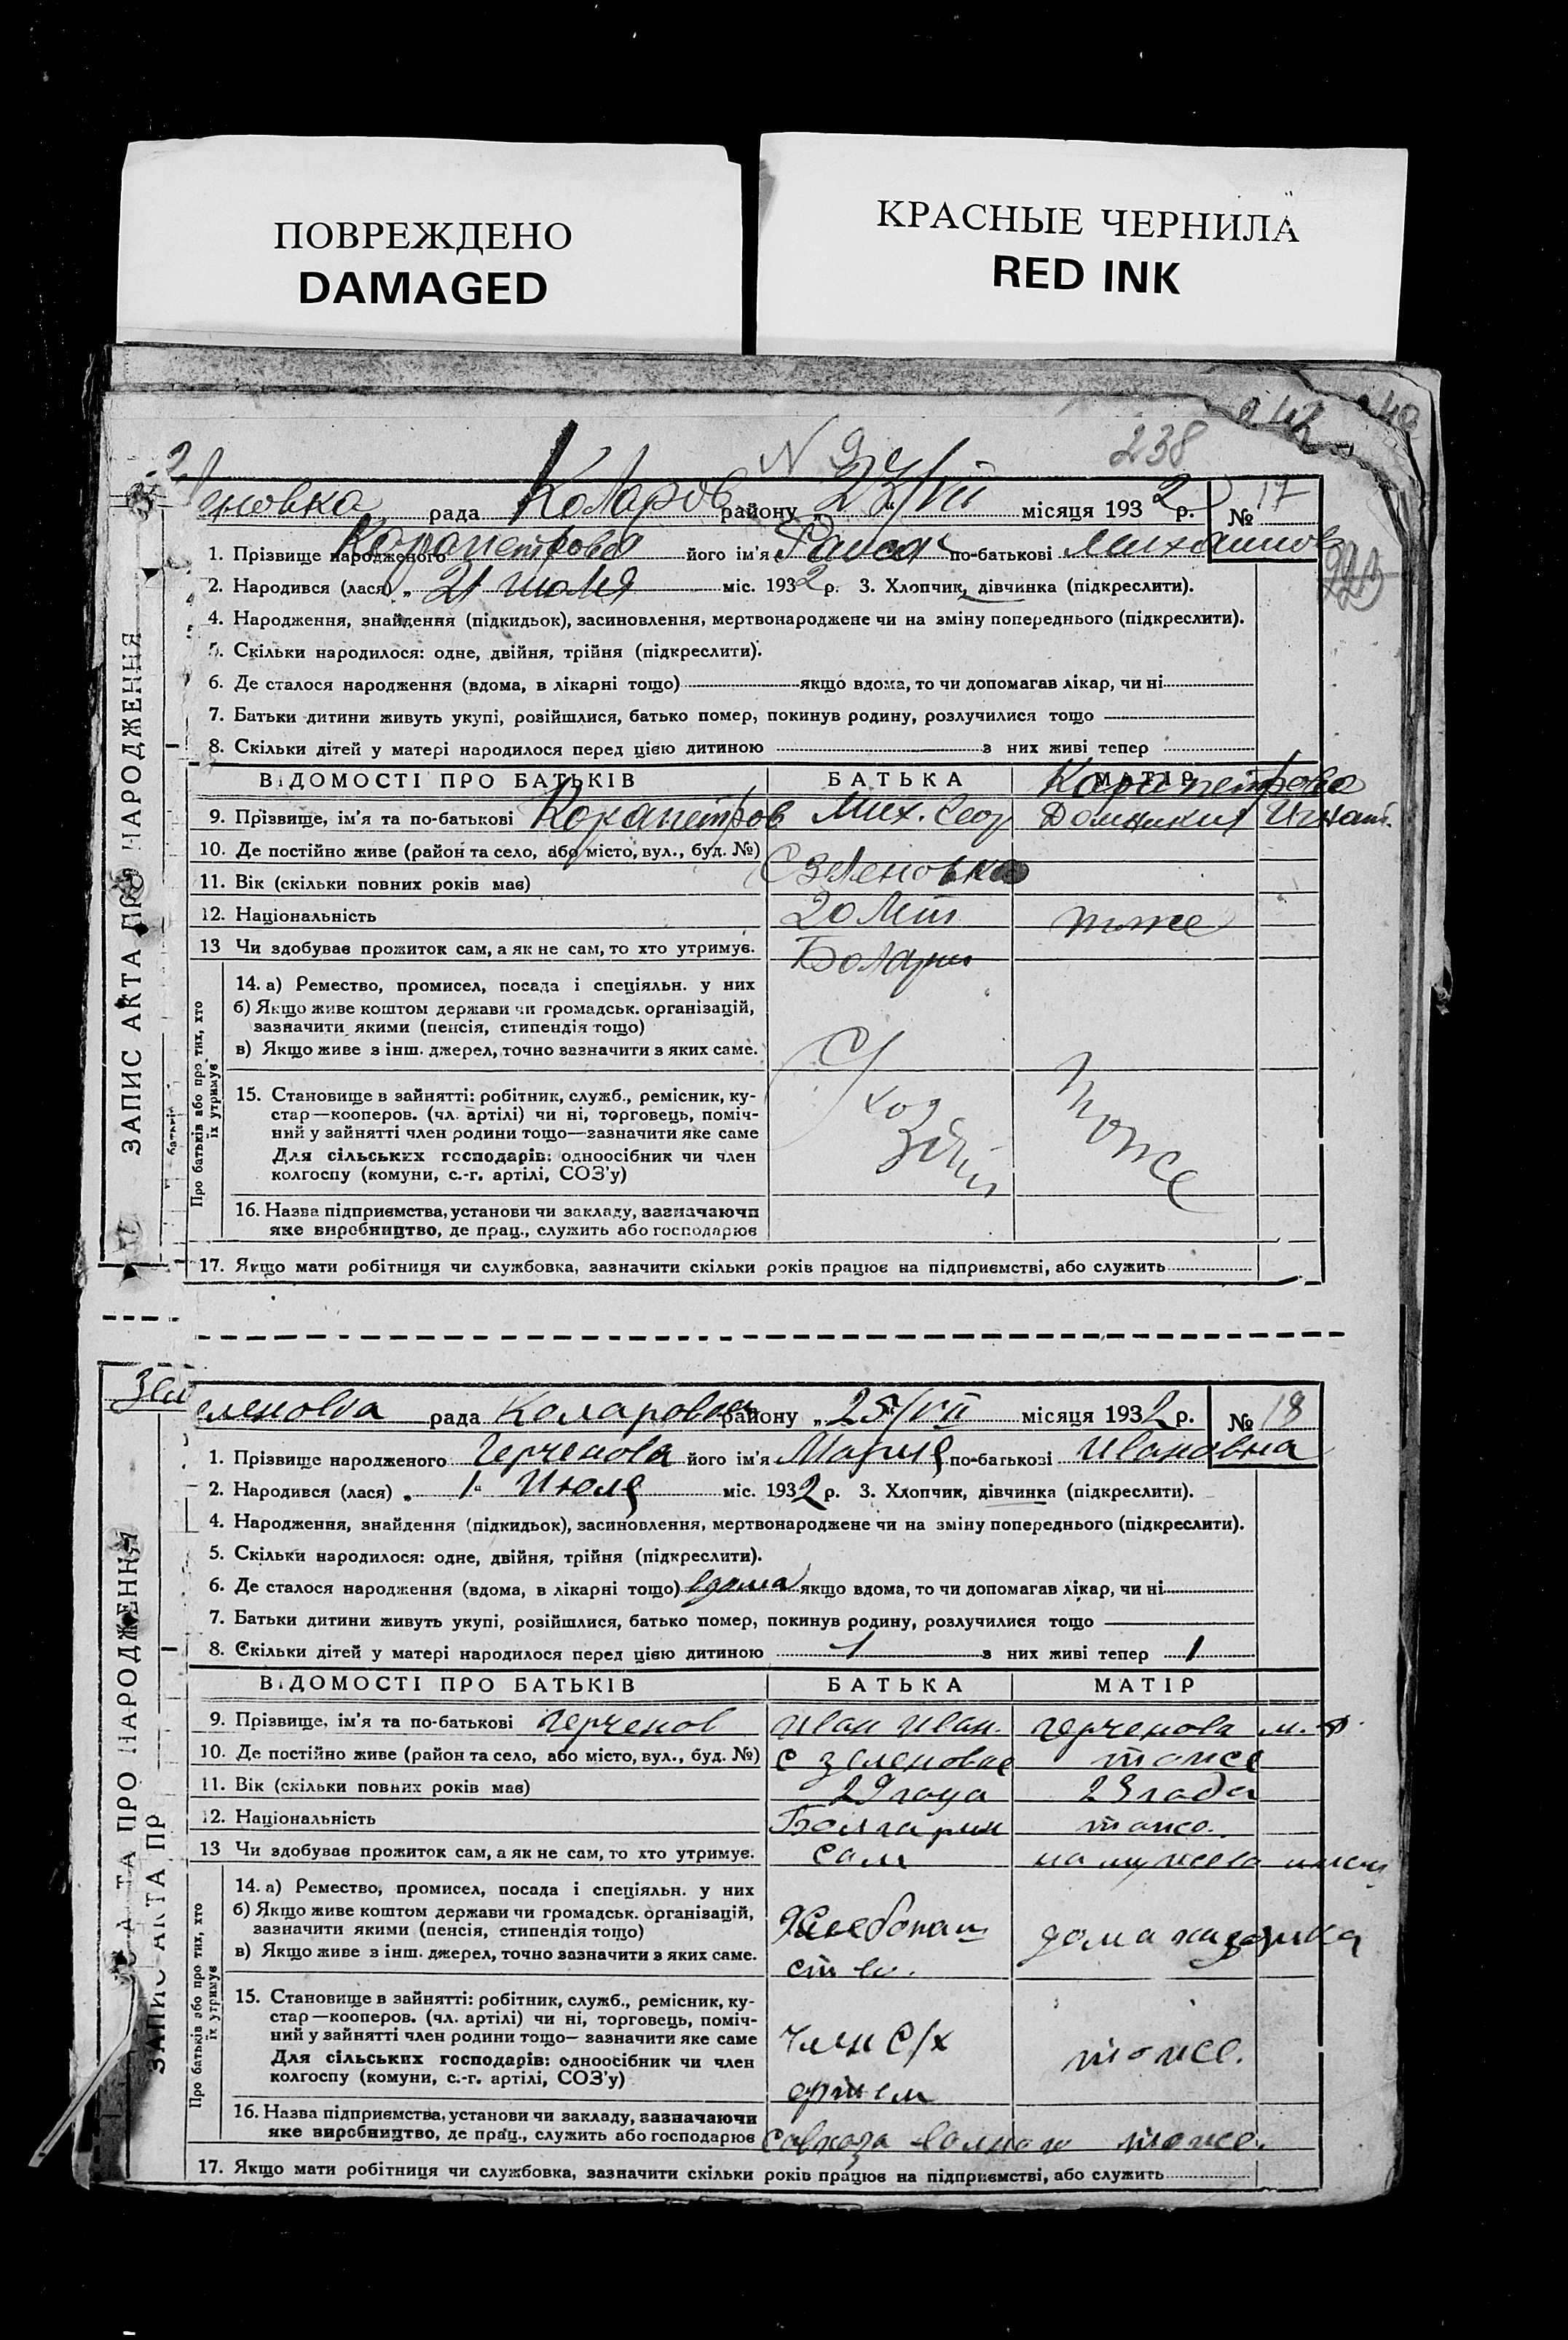 ПОВРЕЖДЕНО
DAMAGED
КРАСНЫЕ ЧЕРНИЛА
RED INK
238
рада Коларов району „ /VII місяця 1932 р. № 17
1. Прізвище народженого Карапетрова його ім'я Раиса по-батькові
2. Народився (лася) „ 21 июля міс. 1932 р. 3. Хлопчик, дівчинка (підкреслити).
4. Народження, знайдення (підкидьок), засиновлення, мертвонароджене чи на зміну попереднього (підкреслити).
5. Скільки народилося: одне, двійня, трійня (підкреслити).
6. Де сталося народження (вдома, в лікарні тощо) якщо вдома, то чи допомагав лікар, чи ні
7. Батьки дитини живуть укупі, розійшлися, батько помер, покинув родину, розлучилися тощо
8. Скільки дітей у матері народилося перед цією дитиною з них живі тепер
ВІДОМОСТІ ПРО БАТЬКІВ БАТЬКА МАТІР Карапетрова
9. Прізвище, ім'я та по-батькові Карапетров Мих. Домникия Игнат.
10. Де постійно живе (район та село, або місто, вул., буд. №)
С Зеленовка
11. Вік (скільки повних років має)
12. Національність 20 лет тоже
13 Чи здобував прожиток сам, а як не сам, то хто утримує.
14. а) Ремество, промисел, посада і спеціяльн. у них
б) Якщо живе коштом держави чи громадськ. організацій,
зазначити якими (пенсія, стипендія тощо)
в) Якщо живе з інш. джерел, точно зазначити з яких саме.
15. Становище в зайнятті: робітник, служб., ремісник, ку-
стар—кооперов. (чл. артілі) чи ні, торговець, поміч-
ний у зайнятті член родини тощо—зазначити яке саме тоже
Для сільських господарів: одноосібник чи член
колгоспу (комуни, с.-г. артілі, СОЗ'у)
16. Назва підприємства, установи чи закладу, зазначаючи
яке виробництво, де прац., служить або господарює
17. Якщо мати робітниця чи службовка, зазначити скільки років працює на підприємстві, або служить
ЗАПИС АКТА ПРО НАРОДЖЕННЯ
Про батьків або про тих, хто
їх утримує
Зеленовка рада Коларовка району „ 25/VII місяця 1932 р. № 18
1. Прізвище народженого Герченова його ім'я Мария по-батькові Ивановна
2. Народився (лася) „ 1 “ Июля міс. 1932 р. 3. Хлопчик, дівчинка (підкреслити).
4. Народження, знайдення (підкидьок), засиновлення, мертвонароджене чи на зміну попереднього (підкреслити).
5. Скільки народилося: одне, двійня, трійня (підкреслити).
6. Де сталося народження (вдома, в лікарні тощо) вдома якщо вдома, то чи допомагав лікар, чи ні
7. Батьки дитини живуть укупі, розійшлися, батько помер, покинув родину, розлучилися тощо
8. Скільки дітей у матері народилося перед цією дитиною 1 з них живі тепер 1
ВІДОМОСТІ ПРО БАТЬКІВ БАТЬКА МАТІР
9. Прізвище, ім'я та по-батькові Герченов Иван Иван. Герченова
10. Де постійно живе (район та село, або місто, вул., буд. №) с Зеленовке тоже
11. Вік (скільки повних років має) 29 года 23 года
12. Національність Болгарин тоже.
13 Чи здобував прожиток сам, а як не сам, то хто утримує. сам
14. а) Ремество, промисел, посада і спеціяльн. у них
б) Якщо живе коштом держави чи громадськ. організацій,
зазначити якими (пенсія, стипендія тощо) Хлебопаш
в) Якщо живе з інш. джерел, точно зазначити з яких саме.
ство.
15. Становище в зайнятті: робітник, служб., ремісник, ку-
стар—кооперов. (чл. артілі) чи ні, торговець, поміч-
ний у зайнятті член родини тощо— зазначити яке саме член С/х тоже.
Для сільських господарів: одноосібник чи член
колгоспу (комуни, с.-г. артілі, СОЗ'у)
16. Назва підприємства, установи чи закладу, зазначаючи
яке виробництво, де прац., служить або господарює тоже.
17. Якщо мати робітниця чи службовка, зазначити скільки років працює на підприємстві, або служить
Про батьків або про тих, хто
їх утримує